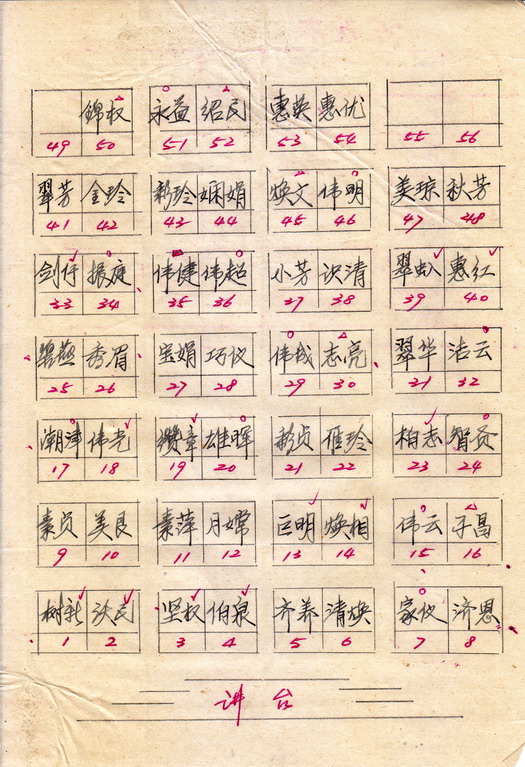 锦权 永益 绍民 惠英 惠优
49 50 51 52 53 54 55 56
翠芳 金玲 彩玲 娴娟 焕文 伟明 美琼 秋芳
41 42 43 44 45 46 47 48
剑仔 振庭 伟健 伟超 小芳 识清 惠红
33 34 35 36 37 38 39 40
碧燕 秀眉 宝娟 巧仪 伟城 志亮 翠华 洁云
25 26 27 28 29 30 31 32
潮津 伟光 缵章 雄晖 彩贞 雁玲 柏志 智贤
17 18 19 20 21 22 23 24
素贞 美良 素萍 月嫦 巨明 焕相 伟云 子昌
9 10 11 12 13 14 15 16
树新 沃民 坚权 伯泉 齐养 清焕 家仪 济恩
1 2 3 4 5 6 7 8
讲台